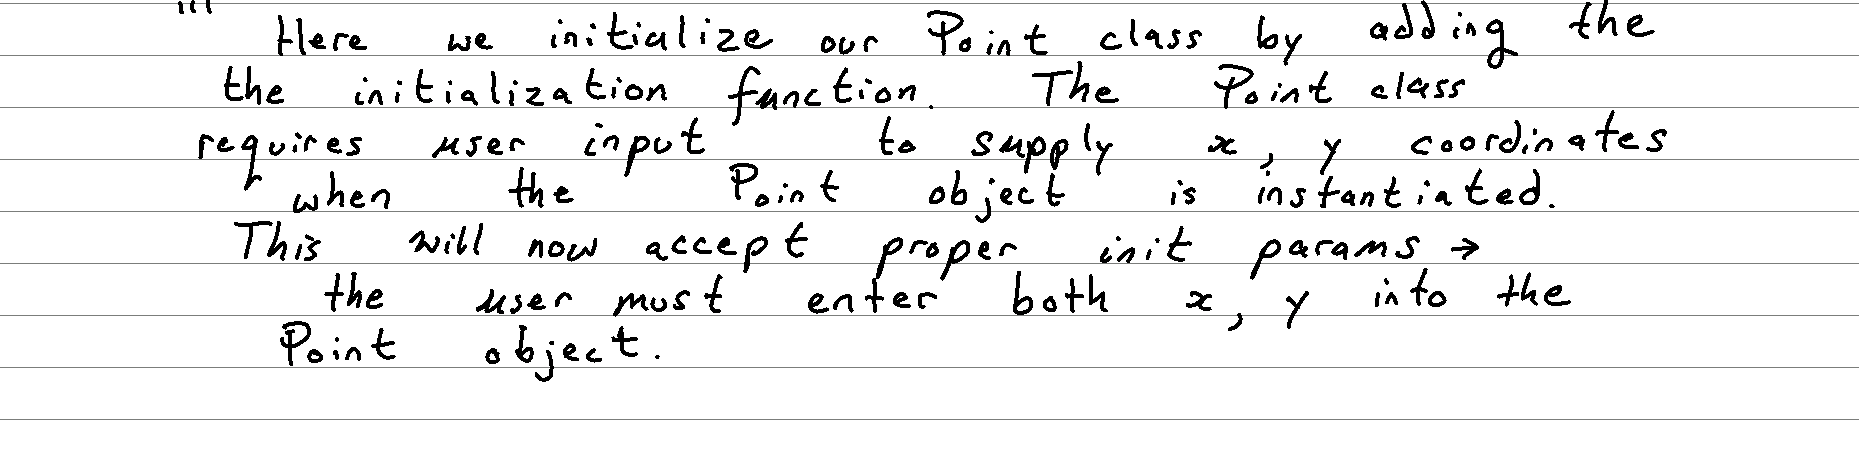 Here we initialize our Point class by adding the
the initialization function. The Point class
requires user input to supply x, y coordinates
when the Point object is instantiated.
This will now accept proper init params →
the user must enter both x, y into the
Point object.